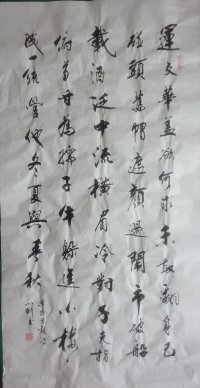 運交華蓋欲何求未敢翻身已
碰頭舊帽遮顏過鬧市破船
載酒泛中流橫眉冷對千夫指
俯首甘為孺子牛躲進小樓
成一統管他冬夏與春秋